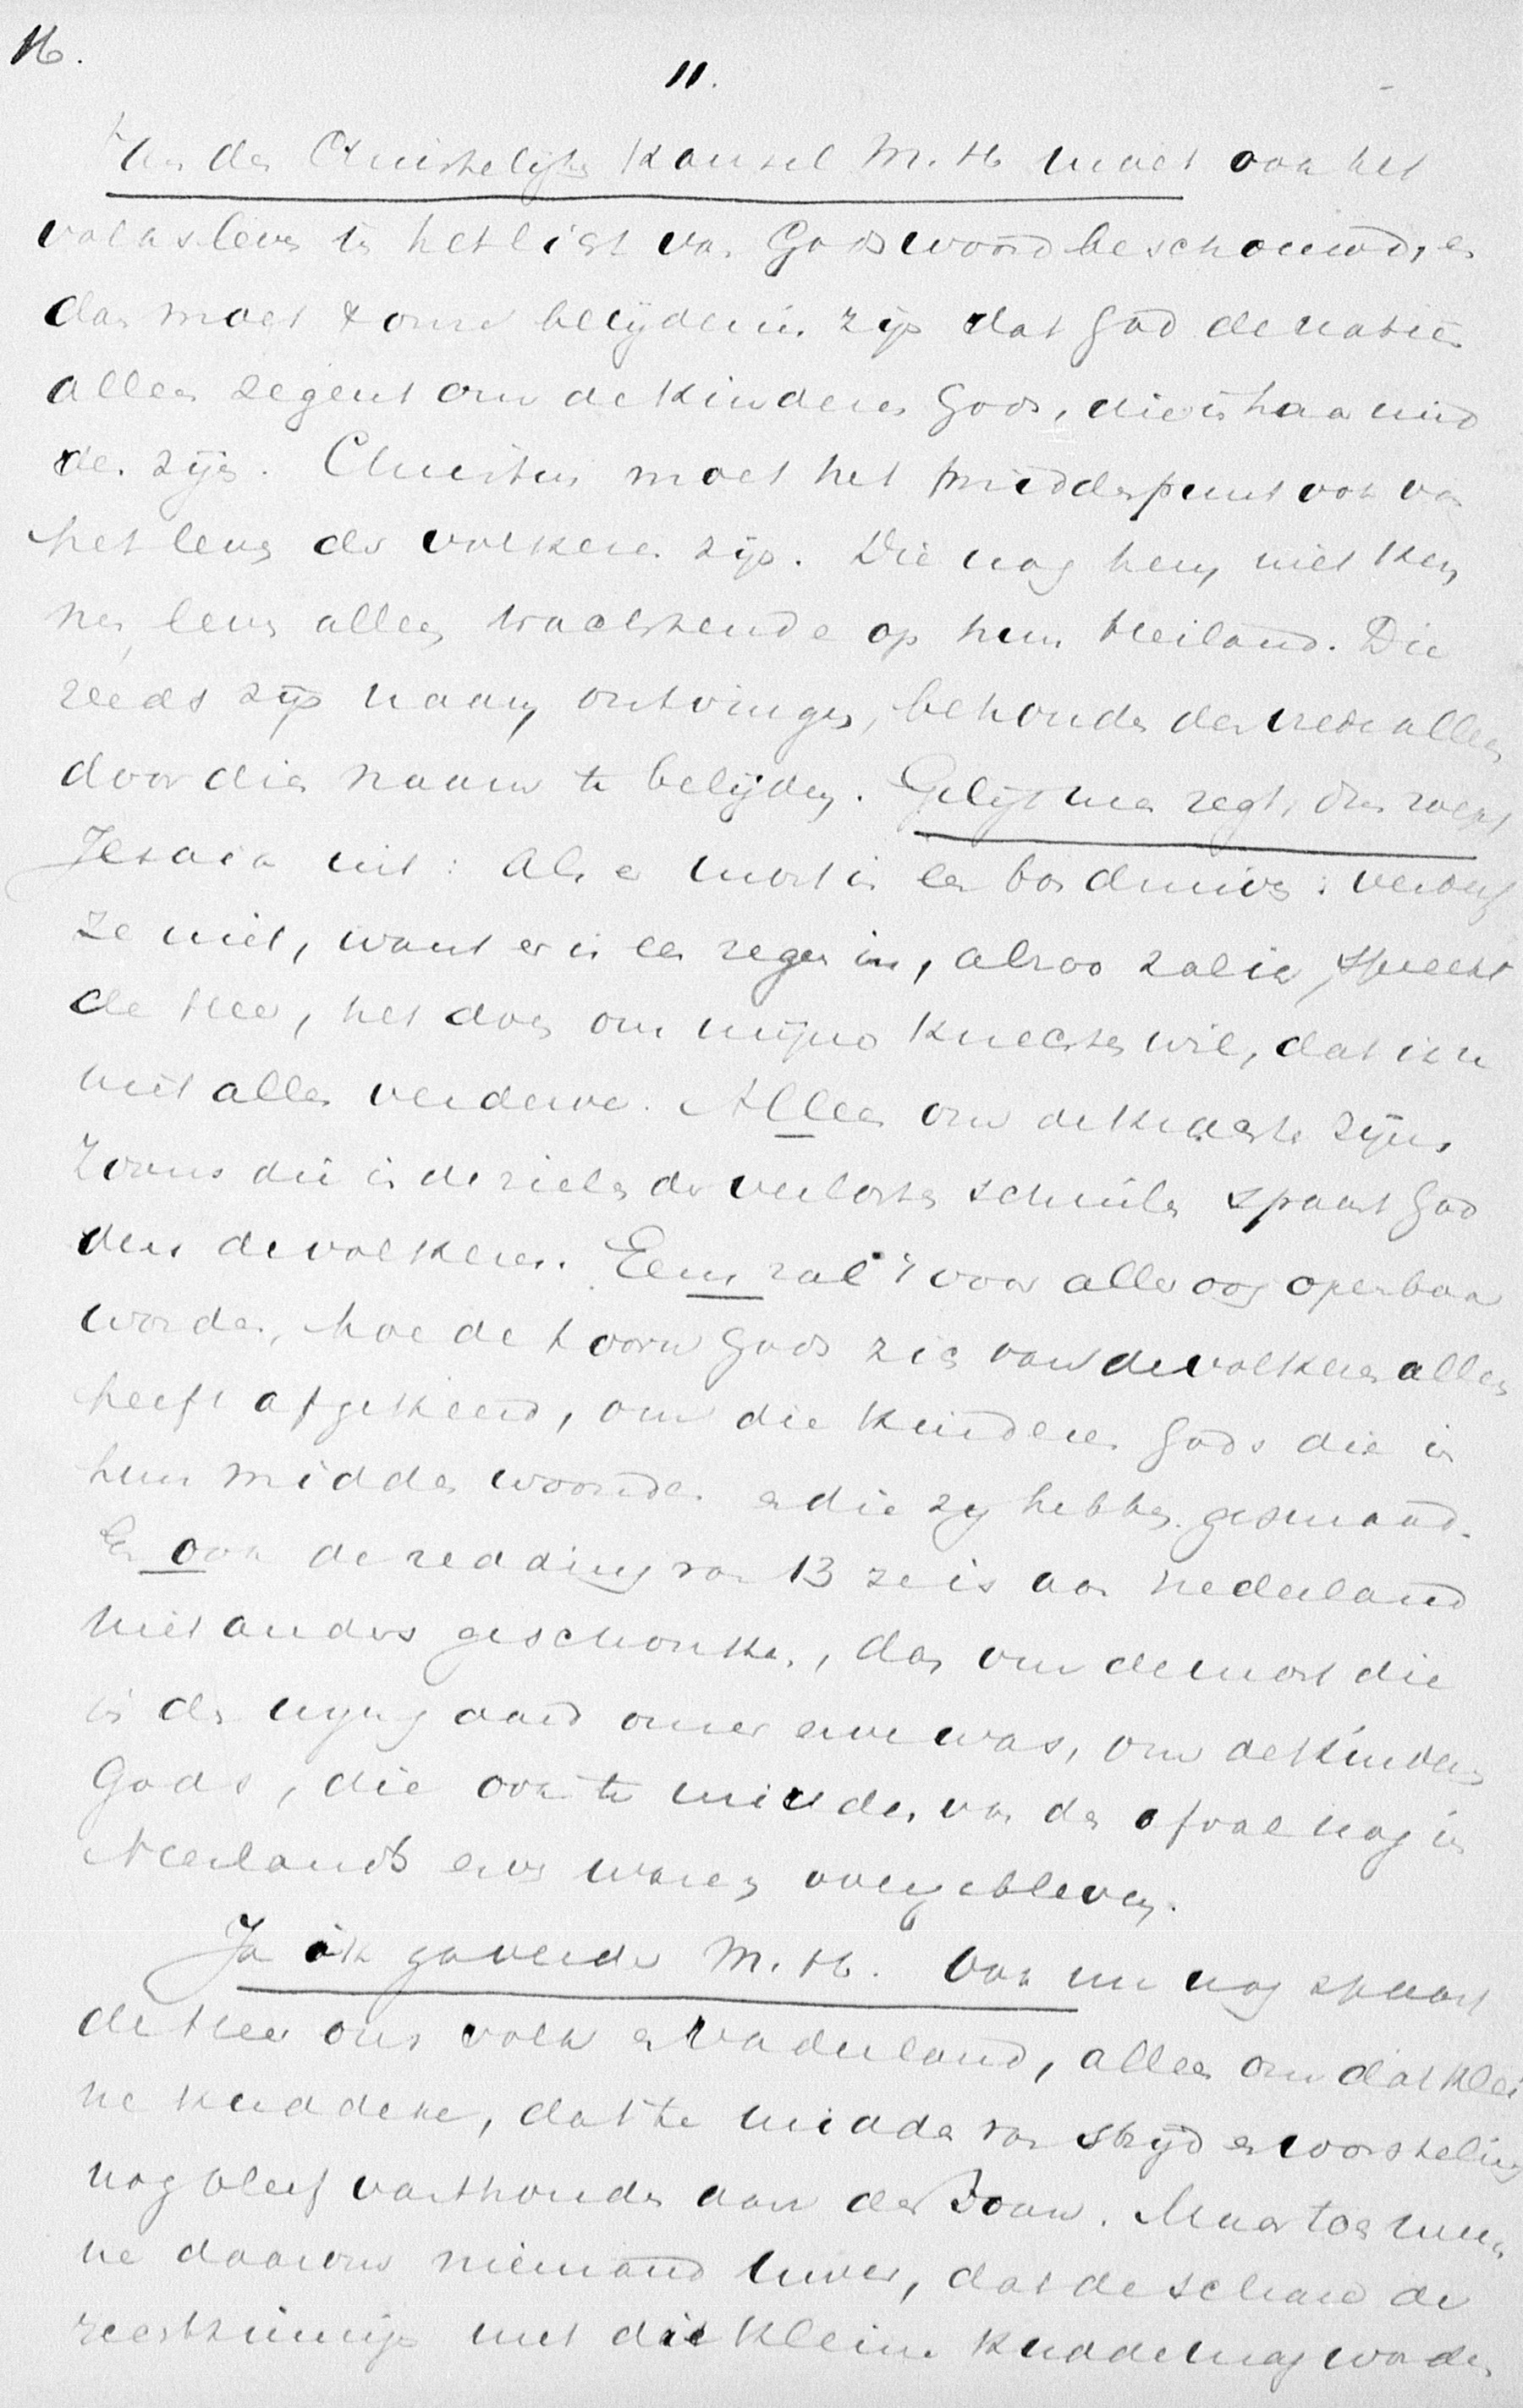 16.
11.
Van den Christelijken Kansel M. H. moet ook het
volksleven in het licht van Gods woord beschouwd, en
dan moet 't onze belijdenis zijn dat God de natiën
alleen zegent om de kinderen Gods, die in haar mid
den zijn. Christus moet het middenpunt ook van
het leven der volkeren zijn. Die nog hem niet ken
nen, leven alleen wachtende op hun Heiland. Die
reeds zijn naam ontvingen, behouden den vrede alleen
door dien naam te belijden. Gelijk men zegt, dus roept
Jesaia uit: Als er most in een bos druiven: verderf
ze niet, want er is een zegen in, alzoo zal ik, spreekt
de Heer, het doen om mijne knechten wil, dat ik ze
niet allen verderve. Alleen om de knechten zijns
Zoons die in de zielen der verlosten schuilen spaart God
dus de volkeren. Eens zal 't voor aller oog openbaar
worden, hoe de toorn Gods zich van de volkeren alleen
heeft afgekeerd, om die kinderen Gods die in
hun midden woonden en die zij hebben gesmaad.
En ook de redding van 13 ze is aan Nederland
niet anders geschonken, dan om de most die
in den wijngaard onzer erve was, om de kinderen
Gods, die ook te midden van den afval nog in
Neerlands erve waren overgebleven.
Ja ik ga verder M. H. Ook nu nog spaart
de Heer ons volk en Vaderland, alleen om dat klei
ne kuddeke, dat te midden van strijd en worsteling
nog bleef vasthouden aan den Zoon. Maar toch mee
ne daarom niemand uwer, dat de schare der
rechtzinnigen met die kleine kudde mag worden